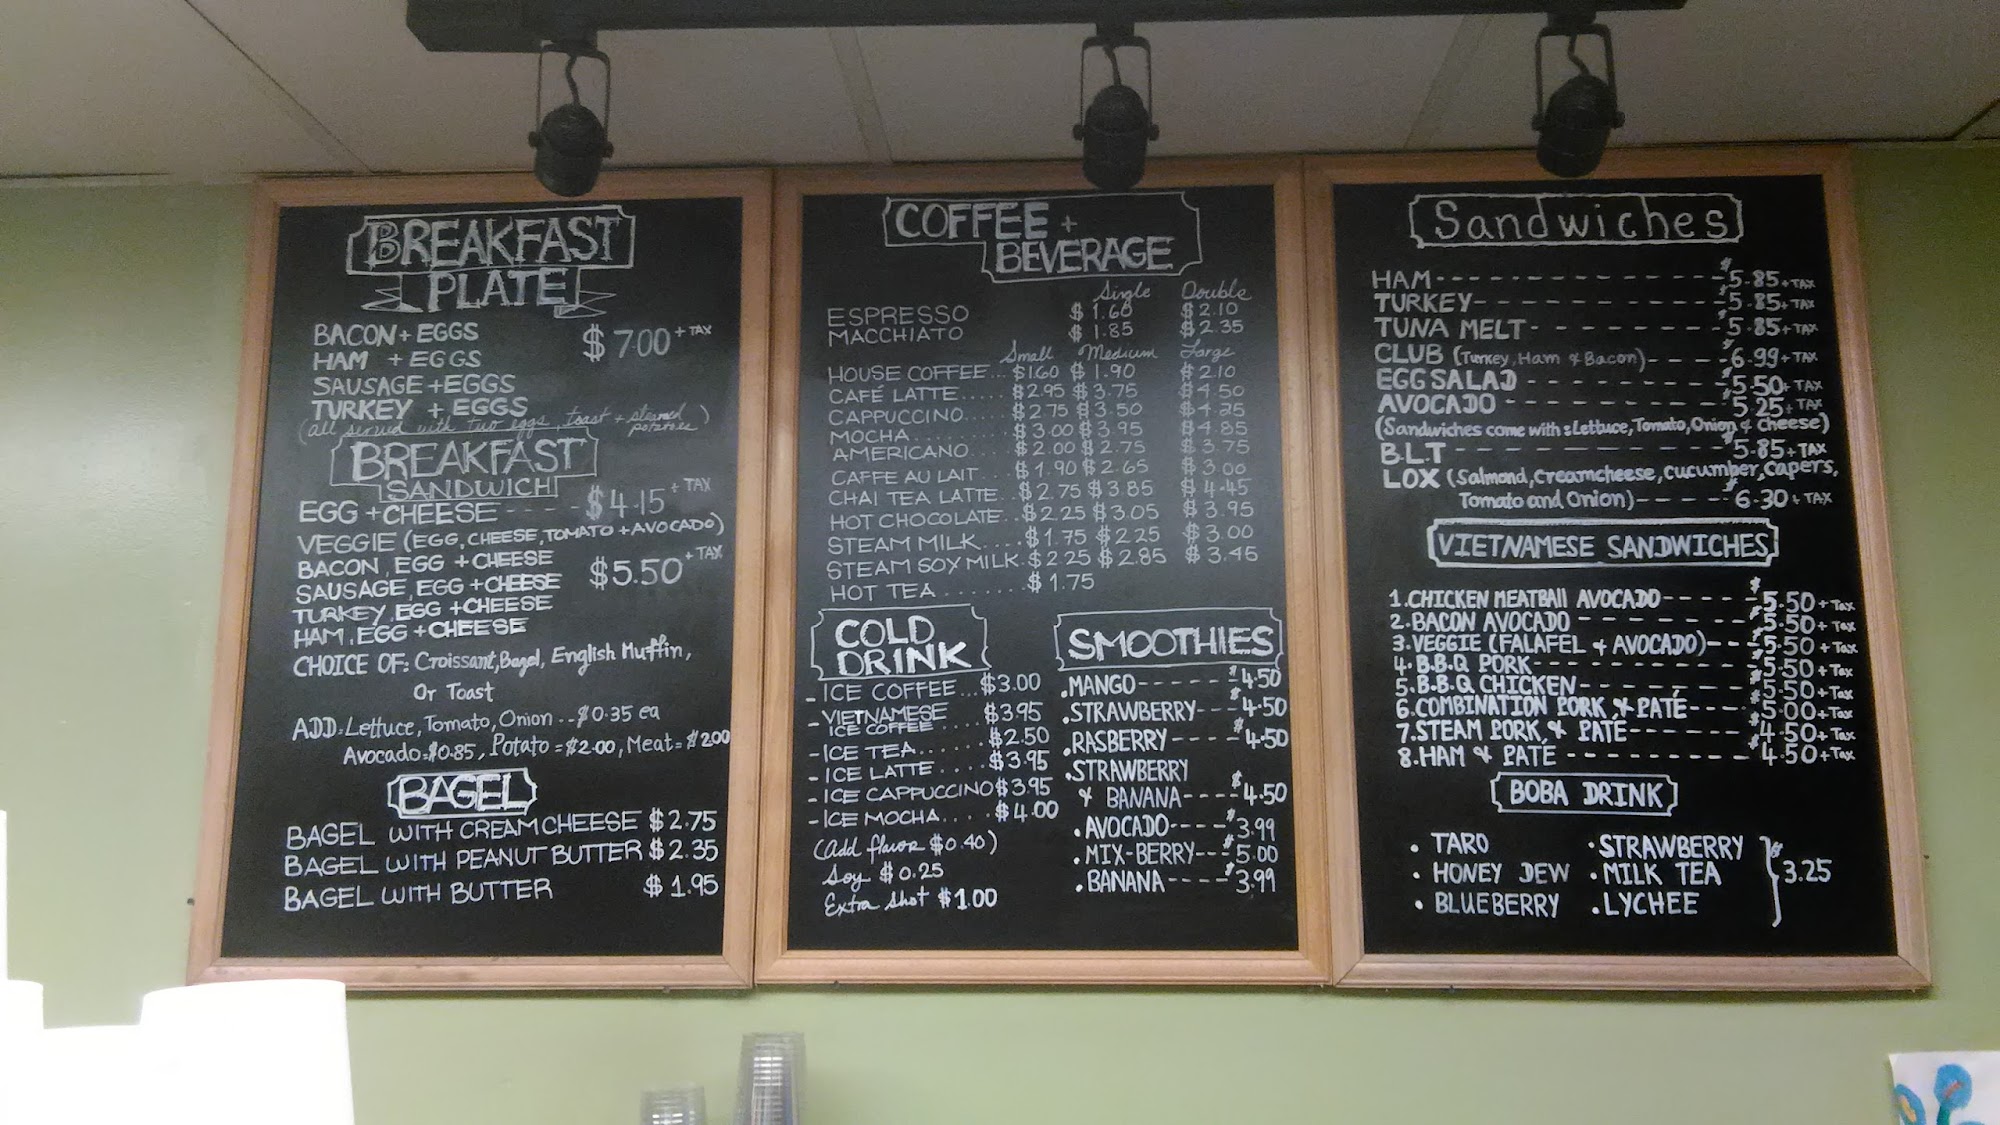 BREAKFAST
PLATE
BACON + EGGS
HAM + EGGS
$7.00 + TAX
SAUSAGE + EGGS
TURKEY + EGGS
(all served with two eggs, toast + steamed potatoes)
BREAKFAST
SANDWICH
EGG + CHEESE ---- $4.15 + TAX
VEGGIE (EGG, CHEESE, TOMATO + AVOCADO)
BACON, EGG + CHEESE
SAUSAGE, EGG + CHEESE
$5.50 + TAX
TURKEY, EGG + CHEESE
HAM, EGG + CHEESE
CHOICE OF: Croissant, Bagel, English Muffin,
Or Toast
ADD: Lettuce, Tomato, Onion -- $0.35 ea
Avocado = $0.85, Potato = $2.00, Meat = $2.00
BAGEL
BAGEL WITH CREAM CHEESE $2.75
BAGEL WITH PEANUT BUTTER $2.35
BAGEL WITH BUTTER $1.95
COFFEE +
BEVERAGE
Single Double
ESPRESSO $1.60 $2.10
MACCHIATO $1.85 $2.35
Small Medium Large
HOUSE COFFEE... $1.60 $1.90 $2.10
CAFÉ LATTE..... $2.95 $3.75 $4.50
CAPPUCCINO.... $2.75 $3.50 $4.25
MOCHA......... $3.00 $3.95 $4.85
AMERICANO.... $2.00 $2.75 $3.75
CAFFE AU LAIT.. $1.90 $2.65 $3.00
CHAI TEA LATTE.. $2.75 $3.85 $4.45
HOT CHOCOLATE.. $2.25 $3.05 $3.95
STEAM MILK.... $1.75 $2.25 $3.00
STEAM SOY MILK. $2.25 $2.85 $3.45
HOT TEA ....... $1.75
COLD
DRINK
- ICE COFFEE... $3.00
- VIETNAMESE
ICE COFFEE ... $3.95
- ICE TEA...... $2.50
- ICE LATTE.... $3.95
- ICE CAPPUCCINO $3.95
- ICE MOCHA.... $4.00
(add flavor $0.40)
Soy $0.25
Extra shot $1.00
SMOOTHIES
.MANGO------$4.50
.STRAWBERRY---$4.50
.RASBERRY----$4.50
.STRAWBERRY
& BANANA---$4.50
.AVOCADO----$3.99
.MIX-BERRY---$5.00
.BANANA----$3.99
Sandwiches
HAM----------------$5.85 + TAX
TURKEY-------------$5.85 + TAX
TUNA MELT----------$5.85 + TAX
CLUB (Turkey, Ham & Bacon)----$6.99 + TAX
EGG SALAD----------$5.50 + TAX
AVOCADO-----------$5.25 + TAX
(Sandwiches come with: Lettuce, Tomato, Onion & Cheese)
B.L.T--------------$5.85 + TAX
LOX (Salmond, Creamcheese, cucumber, capers,
Tomato and Onion)----$6.30 + TAX
VIETNAMESE SANDWICHES
1.CHICKEN MEATBALL AVOCADO-----$5.50 + Tax
2.BACON AVOCADO--------$5.50 + Tax
3.VEGGIE (FALAFEL & AVOCADO)--$5.50 + Tax
4.B.B.Q PORK----------$5.50 + Tax
5.B.B.Q CHICKEN-------$5.50 + Tax
6.COMBINATION PORK & PATÉ---$5.00 + Tax
7.STEAM PORK & PATÉ------$4.50 + Tax
8.HAM & PATE----------$4.50 + Tax
BOBA DRINK
. TARO
. HONEY DEW
. BLUEBERRY
.STRAWBERRY
.MILK TEA
.LYCHEE
$3.25